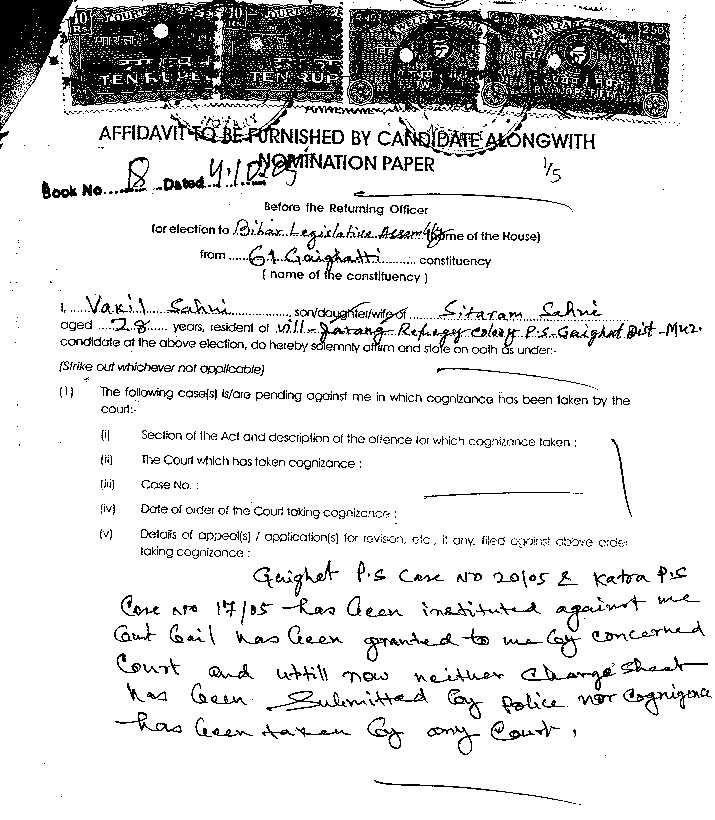 TEN RUPEES TEN RUP
AFFIDAVIT TO BE FURNISHED BY CANDIDATE ALONGWITH
NOMINATION PAPER
1/5
Book No. 18 Dated
Before the Returning Officer
for election to Bihar Legislative Assembly (Name of the House)
from 61 Gaighatti constituency
( name of the constituency )
I, Vakil Sahni son/daughter/wife of Sitaram Sahni
aged 28 years, resident of Vill- Jarang Refugy Colony P.S- Gaighat Dist -Muz.
candidate at the above election, do hereby solemnly affirm and state on oath as under:-
(Strike out whichever not applicable)
(1) The following case(s) is/are pending against me in which cognizance has been taken by the
court:-
(i) Section of the Act and description of the offence for which cognizance taken :
(ii) The Court which has taken cognizance :
(iii) Case No. :
(iv) Date of order of the Court taking cognizance :
(v) Details of appeal(s) / application(s) for revison, etc., if any, filed against above order
taking cognizance :
Gaighat P.S Case No 20/05 & Katra P.S
Case no 17/05 has been instituted against me
but bail has been granted to me by concerned
Court and uttill now neither Charge Sheet
has been Submitted by police nor Cognigence
has been taken by any Court.